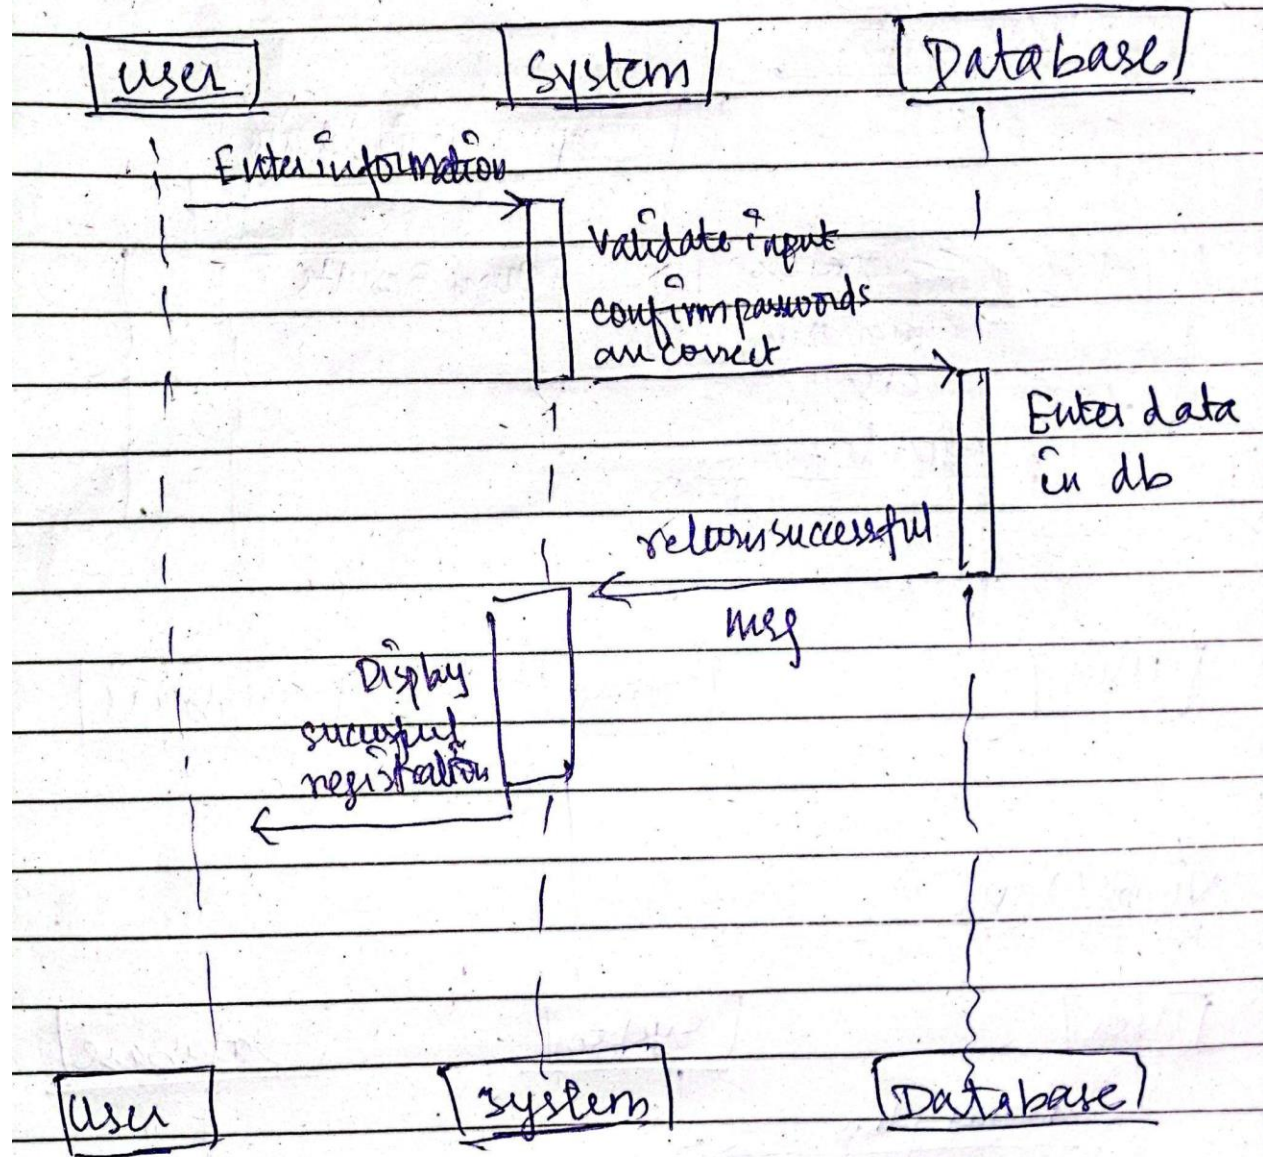 User
System
Database
Enter information
Validate input
confirm passwords
are correct
Enter data
in db
return successful
msg
Display
successful
registration
User
System
Database